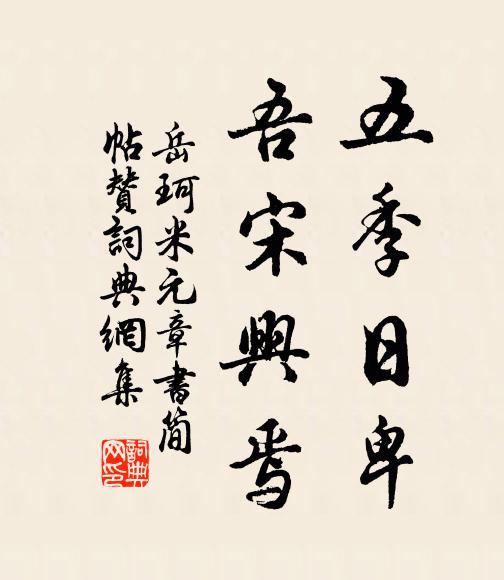 五季日卑
吾宋興焉
岳珂米元章書简
帖贊詞典網集
詞典网印